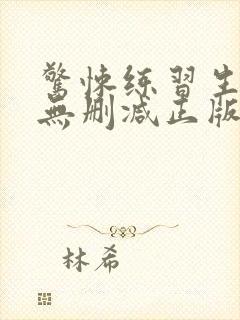 驚悚练習生
無删减正版
林希